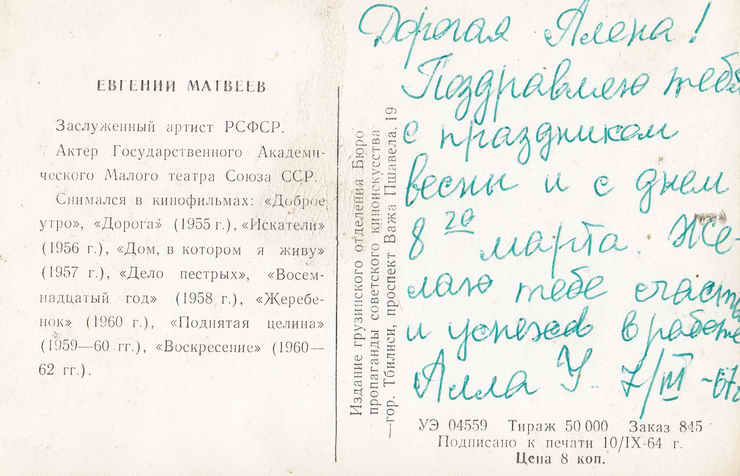 ЕВГЕНИЙ МАТВЕЕВ
Заслуженный артист РСФСР.
Актер Государственного Академи-
ческого Малого театра Союза ССР.
Снимался в кинофильмах: «Доброе
утро», «Дорога» (1955 г.), «Искатели»
(1956 г.), «Дом, в котором я живу»
(1957 г.), «Дело пестрых», «Восем-
надцатый год» (1958 г.), «Жеребе-
нок» (1960 г.), «Поднятая целина»
(1959—60 гг.), «Воскресение» (1960—
62 гг.).
Издание грузинского отделения Бюро
пропаганды советского киноискусства
—гор. Тбилиси, проспект Важа Пшавела, 19
Дорогая Алена!
Поздравляю тебя
с праздником
весны и с днем
8 го марта. Же-
лаю тебе счастья
и успехов в работе
Алла У. 7/III-67г
УЭ 04559 Тираж 50 000 Заказ 845
Подписано к печати 10/IX-64 г.
Цена 8 коп.